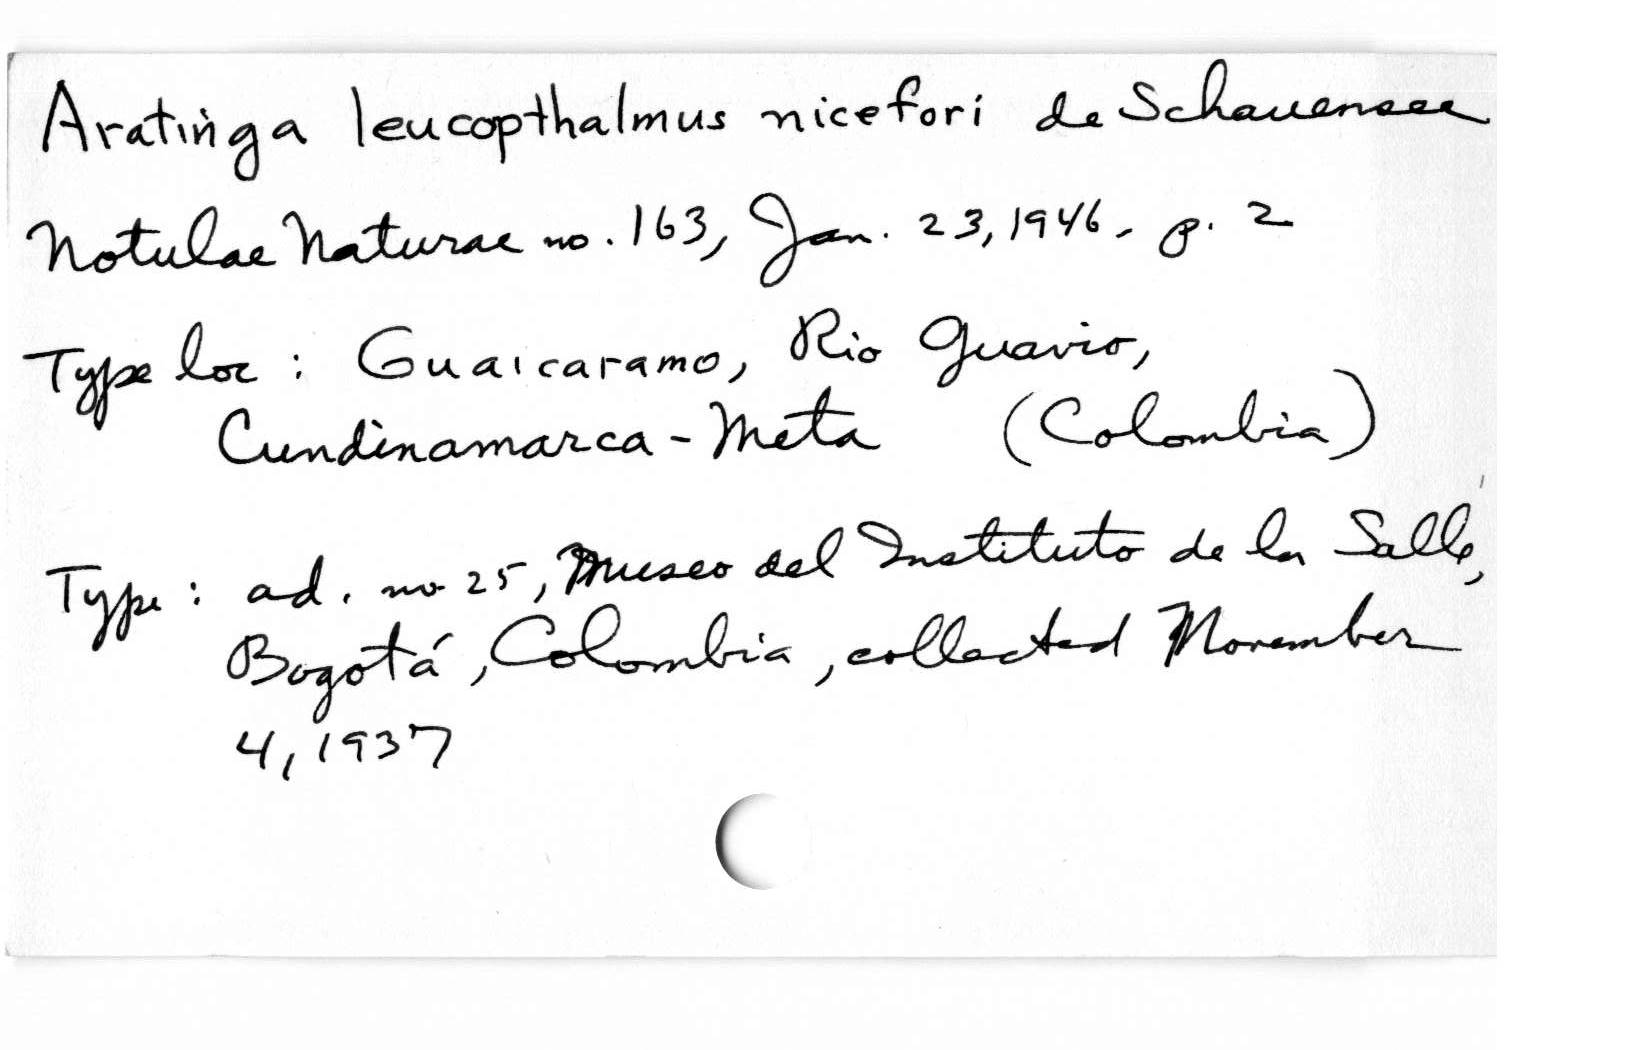 Aratinga leucopthalmus nicefori de Schauensee
Notulae Naturae no. 163, Jan. 23, 1946, p. 2
Type loc : Guaicaramo, Rio Guavio,
Cundinamarca - Meta (Colombia)
Type : ad. no 25, Museo del Instituto de la Salle,
Bogotá, Colombia, collected November
4, 1937